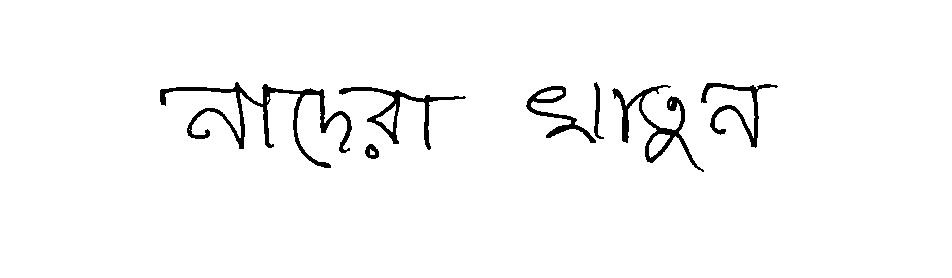 নাদেরা খাতুন